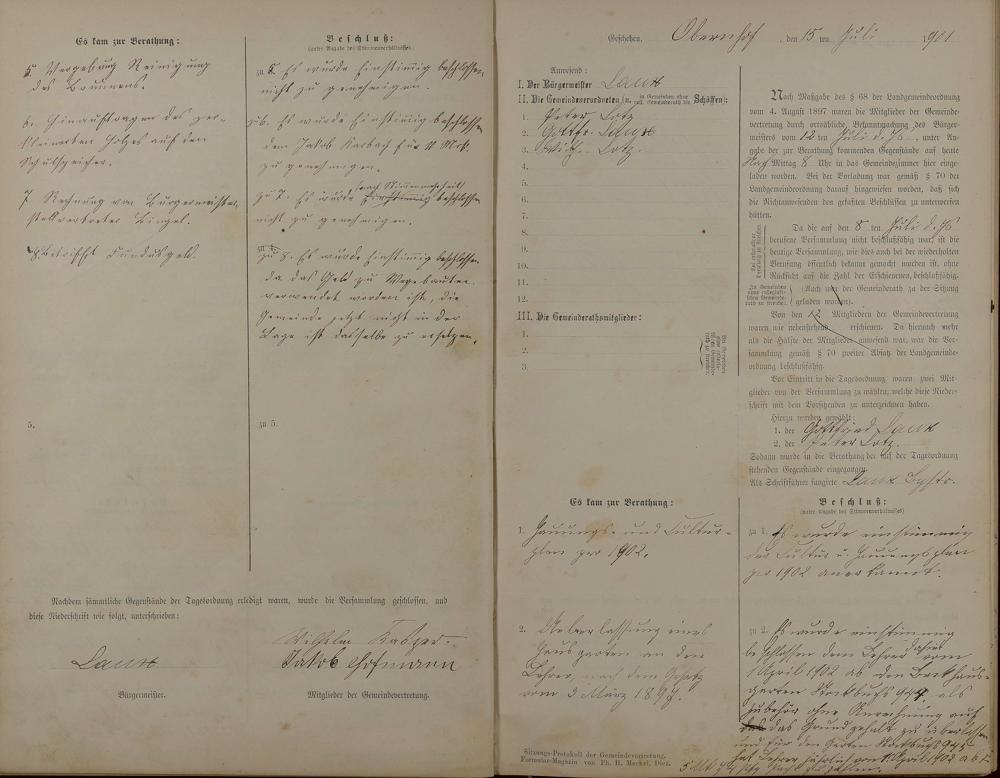 Es kam zur Berathung:
Beschluß:
(unter Angabe des Stimmverhältnisses)
5. Vergebung Reinigung
des Brunnens.
zu 5. Es wurde Einstimmig beschlossen
nicht zu genehmigen.
6. Hinauftragen des zer-
kleinerten Holzes auf den
Schulspeicher.
zu 6. Es wurde Einstimmig beschlossen
dem Jakob Karbach für 4 Mk.
zu genehmigen.
7 Rechnung von Bürgermeister-
stellvertreter Bingel.
zu 7. Es wurde (nach Stimmmehrheit) Einstimmig beschlossen
nicht zu genehmigen.
8. Betrifft Fundusgeld.
zu 4.
zu 8. Es wurde Einstimmig beschlossen
da das Geld zu Wegebauten
verwendet worden ist, die
Gemeinde jetzt nicht in der
Lage ist dasselbe zu ersetzen.
5.
zu 5.
Nachdem sämmtliche Gegenstände der Tagesordnung erledigt waren, wurde die Versammlung geschlossen, und
diese Niederschrift wie folgt, unterschrieben:
Wilhelm
Jakob Hofmann
Laux
Bürgermeister.
Mitglieder der Gemeindevertretung.
Geschehen, Obernhof, den 15 ten Juli 1901
Anwesend:
I. Der Bürgermeister Laux
II. Die Gemeindeverordneten (u. in Gemeinden ohne coll. Gemeinderath die Schöffen):
1. Peter Lotz
2. Gottfr. Laux
3. Wilh. Lotz.
4.
5.
6.
7.
8.
9.
10.
11.
12.
III. Die Gemeinderathsmitglieder:
1.
2.
3.
Nach Maßgabe des § 68 der Landgemeindeordnung
vom 4. August 1897 waren die Mitglieder der Gemeinde-
vertretung durch ortsübliche Bekanntmachung des Bürger-
meisters vom 12 ten Juli d. Js. unter An-
gabe der zur Berathung kommenden Gegenstände auf heute
Nach Mittag 8 Uhr in das Gemeindezimmer hier einge-
laden worden. Bei der Vorladung war gemäß § 70 der
Landgemeindeordnung darauf hingewiesen worden, daß sich
die Nichtanwesenden den gefaßten Beschlüssen zu unterwerfen
hätten.
Da die auf den 8 ten Juli d. Js
berufene Versammlung nicht beschlußfähig war, ist die
heutige Versammlung, wie dies auch bei der wiederholten
Berufung öffentlich bekannt gemacht worden ist, ohne
Rücksicht auf die Zahl der Erschienenen, beschlußfähig.
(Auch war der Gemeinderath zu der Sitzung
geladen worden).
Von den 12 Mitgliedern der Gemeindevertretung
waren wie nebenstehend erschienen. Da hiernach mehr
als die Hälfte der Mitglieder anwesend war, war die Ver-
sammlung gemäß § 70 zweiter Absatz der Landgemeinde-
ordnung beschlußfähig.
Vor Eintritt in die Tagesordnung waren zwei Mit-
glieder von der Versammlung zu wählen, welche diese Nieder-
schrift mit dem Vorsitzenden zu unterzeichnen haben.
Hierzu wurden gewählt:
1. der Gottfried Laux
2. der Peter Lotz.
Sodann wurde in die Berathung der auf der Tagesordnung
stehenden Gegenstände eingegangen.
Als Schriftführer fungirte Laux
Es kam zur Berathung:
Beschluß:
(unter Angabe des Stimmverhältnisses)
1. Hauungs- und Cultur-
plan pro 1902.
zu 1. Es wurde einstimmig
der Cultur u. Hauungsplan
pro 1902 anerkannt.
2. Ueberlassung eines
Hausgarten an den
Lehrer, nach dem Gesetz
vom 3 März 1897.
zu 2. Es wurde einstimmig
beschlossen dem Lehrer vom
1 April 1902 ab den Backhaus-
garten Stockbuchs als
Zubehör ohne Anrechnung auf
das Grundgehalt zu überlassen
und für den Garten Stockbuchs 945
1 April 1902 ab
Sitzungs-Protokoll der Gemeindevertretung.
Formular-Magazin von Ph. H. Meckel, Diez.